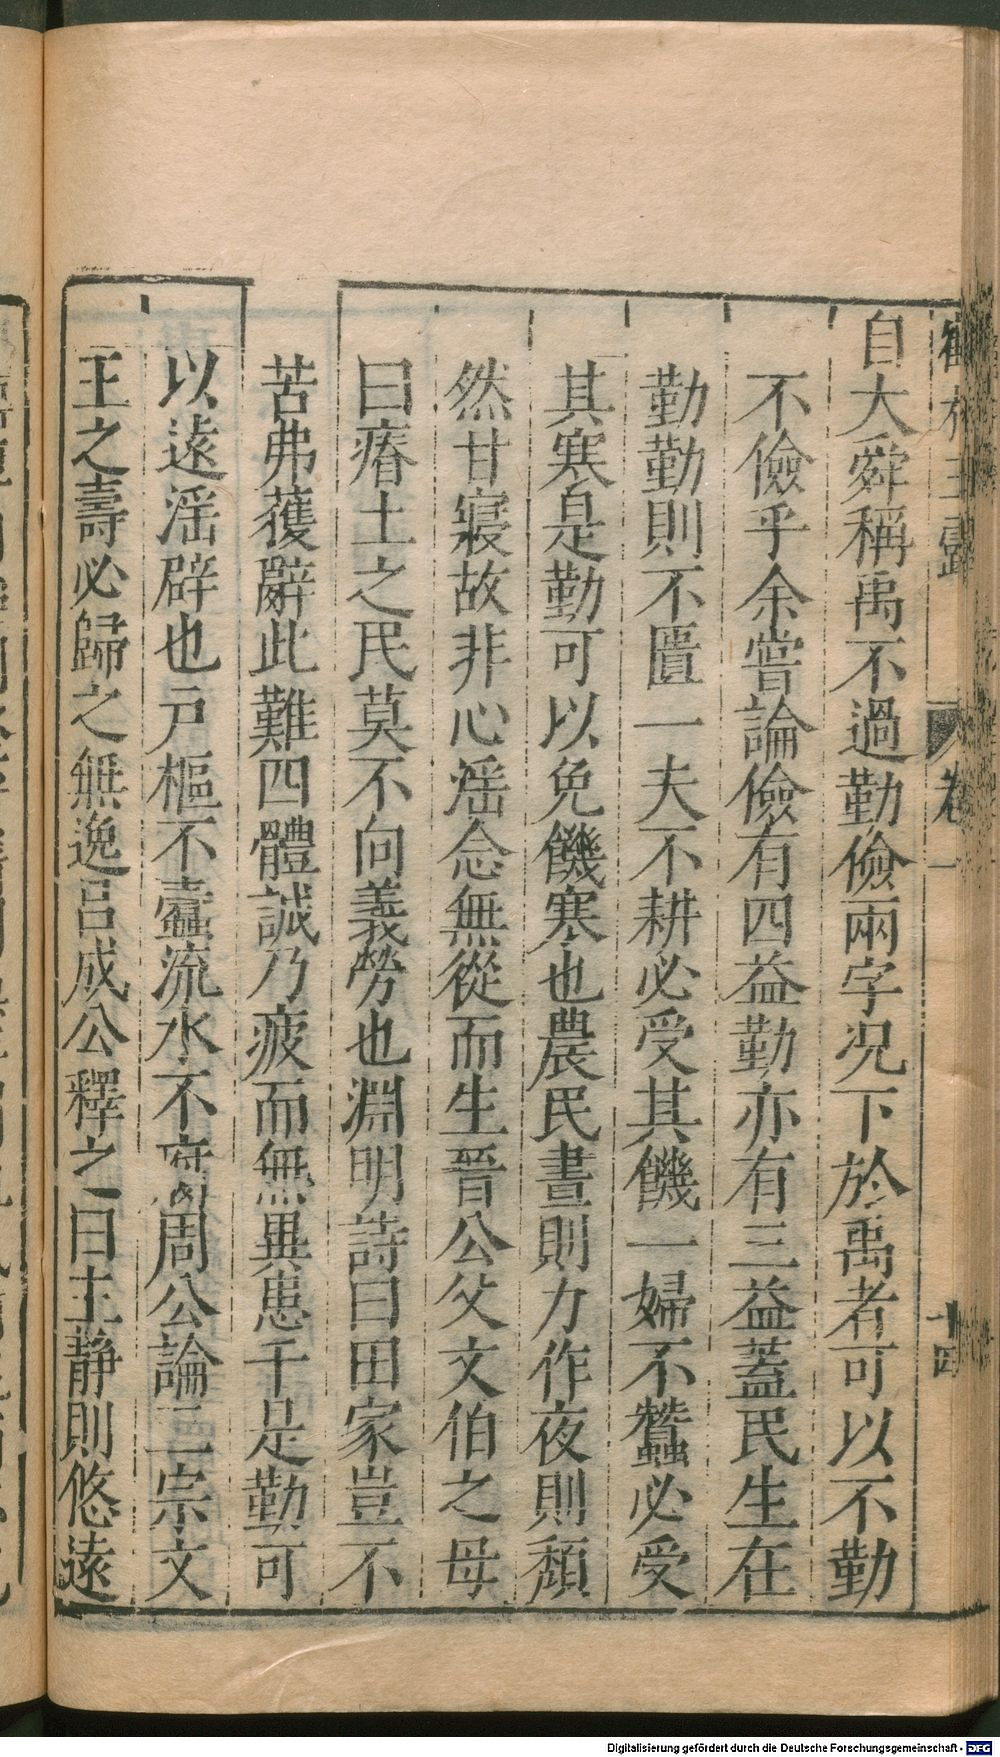 自大舜稱禹不過勤儉兩字况下於禹者可以不勤
不儉乎余嘗論儉有四益勤亦有三益蓋民生在
勤勤則不匱一夫不耕必受其饑一婦不蠶必受
其寒是勤可以免饑寒也農民晝則力作夜則頹
然甘寢故非心淫念無從而生晉公父文伯之母
曰瘠土之民莫不向義勞也淵明詩曰田家豈不
苦弗獲辭此難四體誠乃疲而無異患干是勤可
以遠淫辟也戶樞不蠹流水不腐周公論三宗文
王之壽必歸之無逸吕成公釋之曰主静則悠遠
卷一
十四
Digitalisierung gefördert durch die Deutsche Forschungsgemeinschaft - DFG